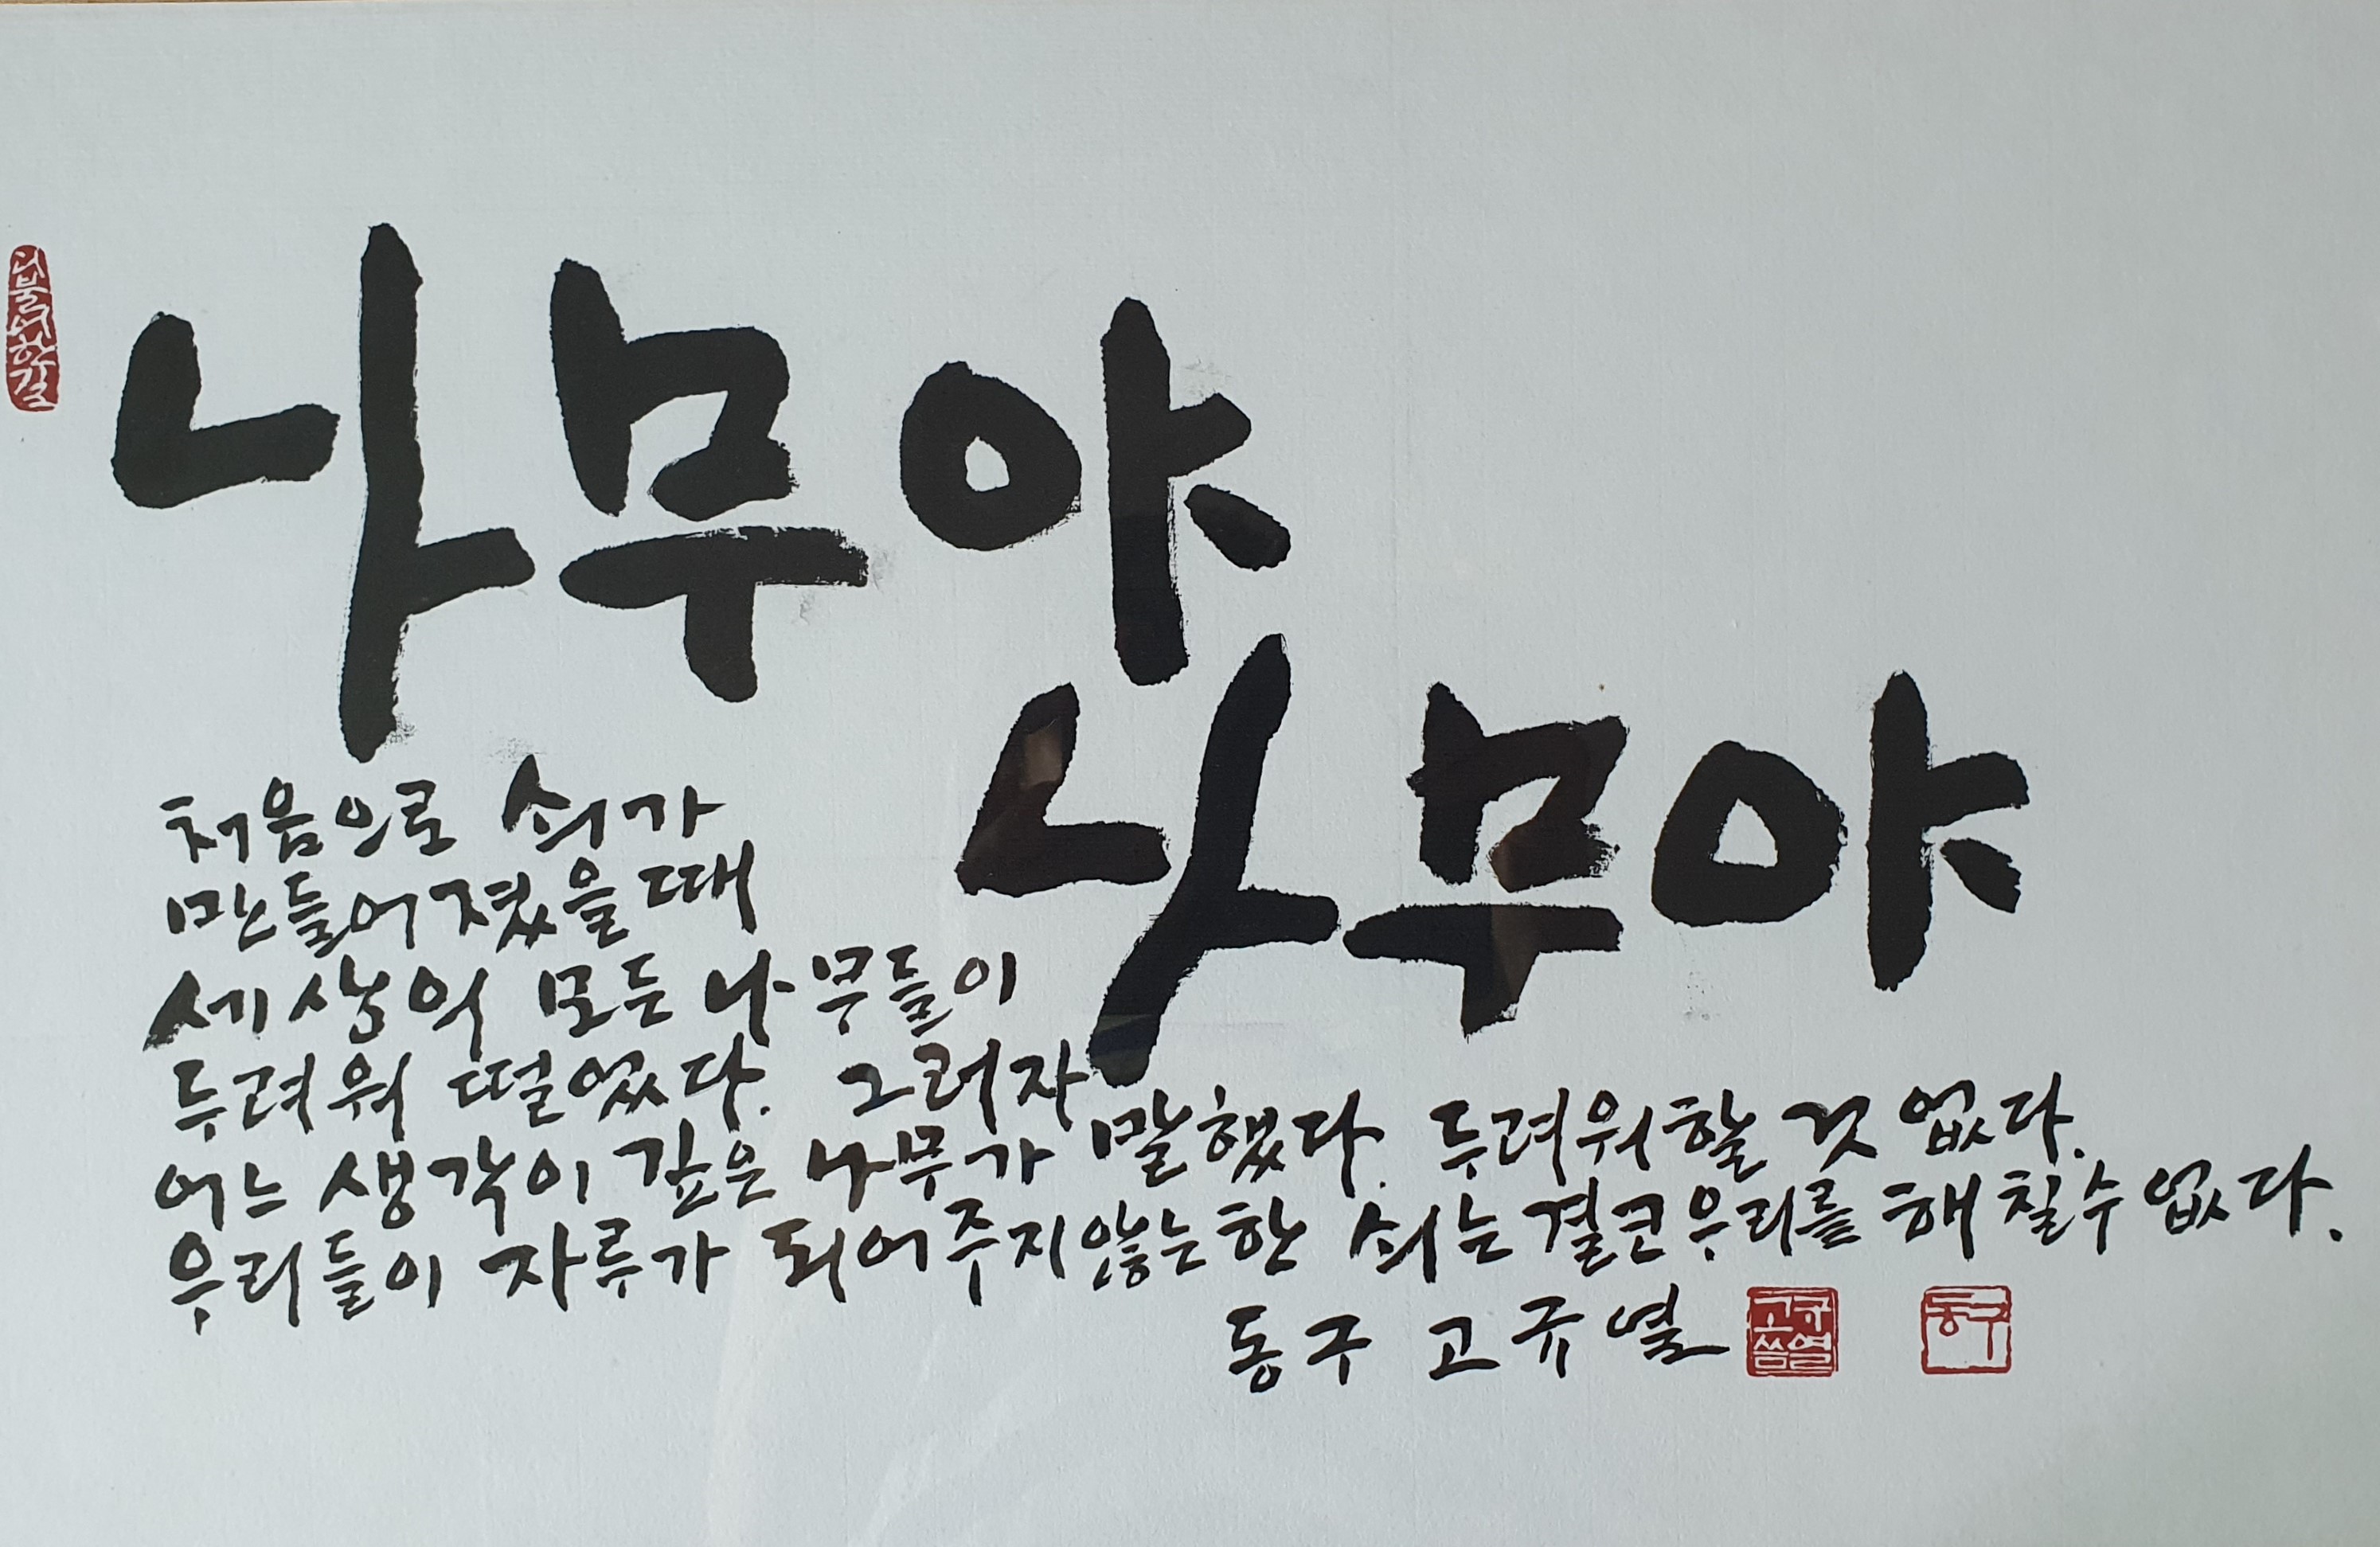 나무야
나무야
처음으로 쇠가
만들어졌을 때
세상의 모든 나무들이
두려워 떨었다. 그러자
어느 생각이 깊은 나무가 말했다. 두려워할 것 없다.
우리들이 자루가 되어주지 않는 한 쇠는 결코 우리를 해칠 수 없다.
동구 고규열
고규열씀
동구